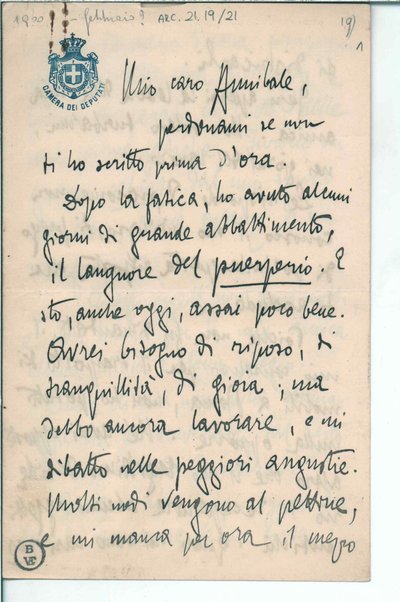 1900 - febbraio? ARC. 21.19/21
19)
1
CAMERA DEI DEPUTATI
Mio caro Annibale,
perdonami se non
ti ho scritto prima d'ora.
Dopo la fatica, ho avuto alcuni
giorni di grande abbattimento,
il languore del puerperio. E
sto, anche oggi, assai poco bene.
Avrei bisogno di riposo, di
tranquillità, di gioia; ma
debbo ancora lavorare, e mi
dibatto nelle peggiori angustie.
Molti nodi vengono al pettine,
e mi manca per ora il mezzo
B
VE